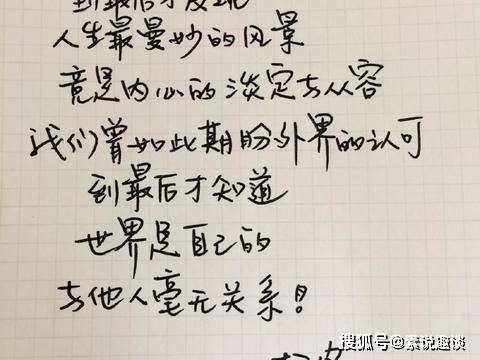 到最后才发现
人生最曼妙的风景
竟是内心的淡定与从容
我们曾如此期盼外界的认可
到最后才知道
世界是自己的
与他人毫无关系！
搜狐号@素说趣谈